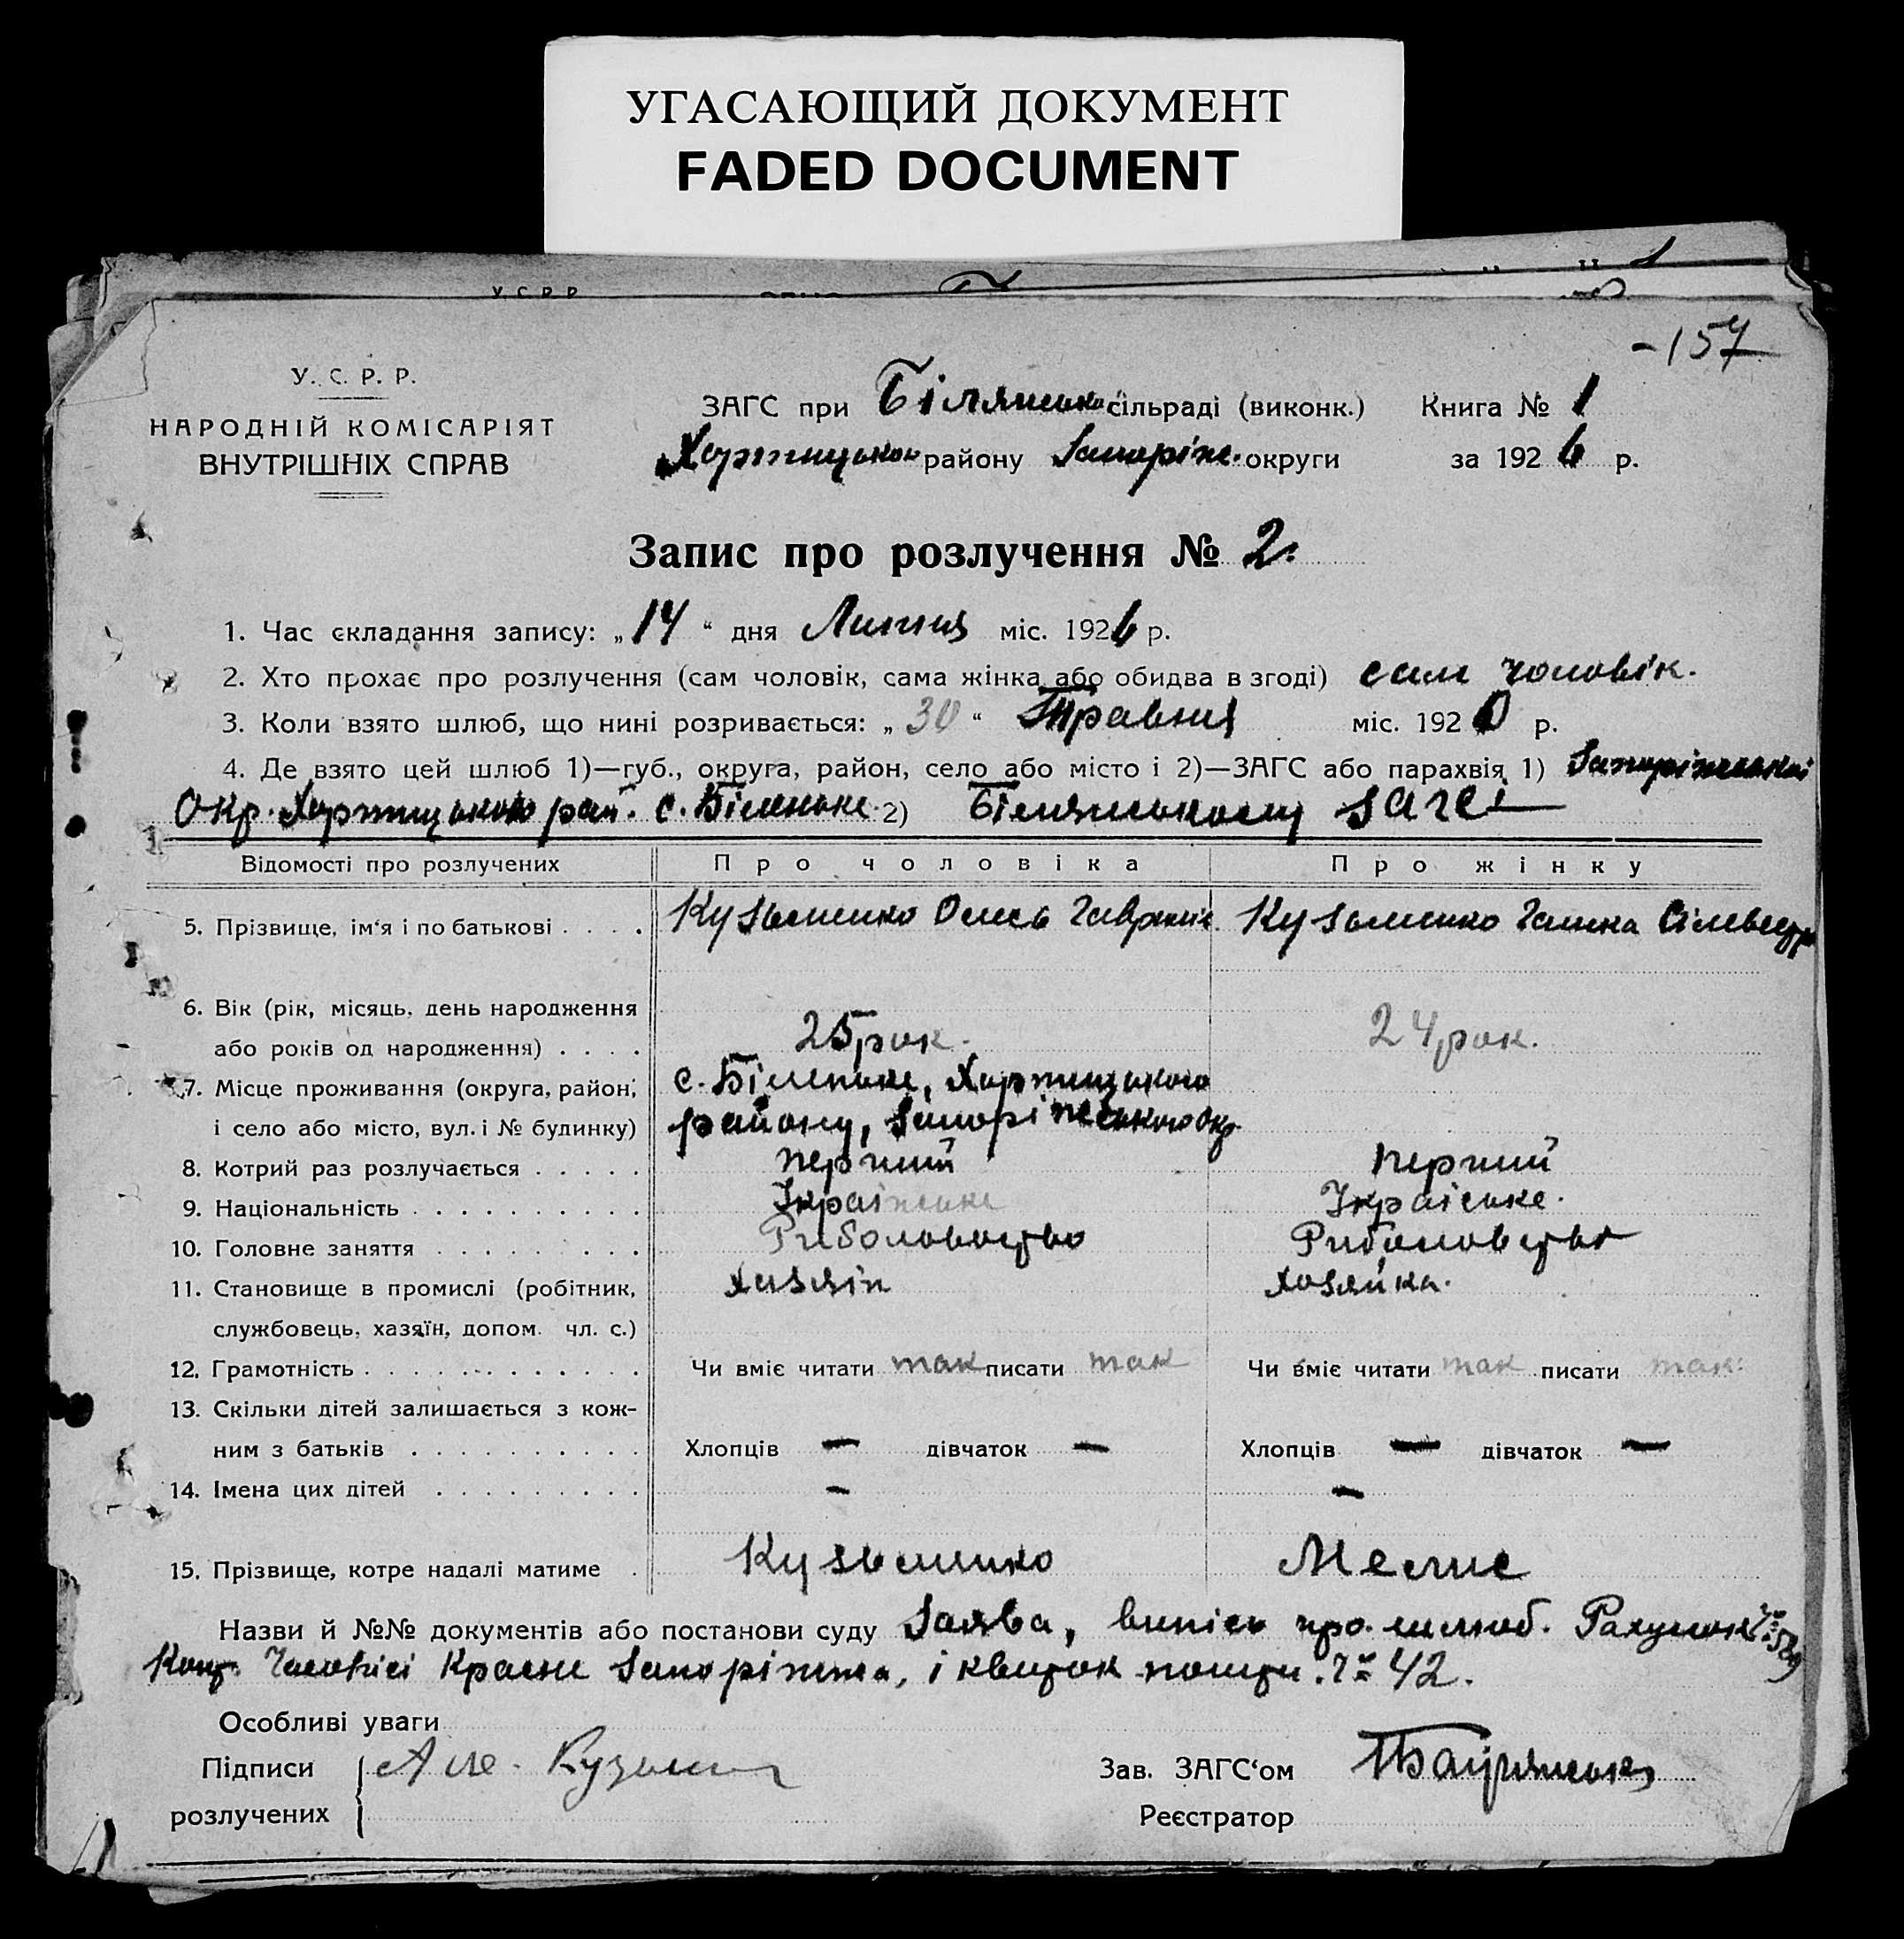 УГАСАЮЩИЙ ДОКУМЕНТ
FADED DOCUMENT
У.С.Р.Р.
-157
У. С. Р. Р.
НАРОДНІЙ КОМІСАРІЯТ
ВНУТРІШНІХ СПРАВ
ЗАГС при Білянсько сільраді (виконк.) Книга № 1
Хортицьком району Запоріж. округи за 1926 р.
Запис про розлучення № 2.
1. Час складання запису: „14“ дня Липня міс. 1926 р.
2. Хто прохає про розлучення (сам чоловік, сама жінка або обидва в згоді) сам чоловік.
3. Коли взято шлюб, що нині розривається: „30“ Травня міс. 1920 р.
4. Де взято цей шлюб 1)—губ., округа, район, село або місто і 2)—ЗАГС або парахвія 1) Запоріжської
Окр. Хортицького рай. с. Біленьке 2) Білянському загсі
Відомості про розлучених Про чоловіка Про жінку
5. Прізвище, ім‘я і по батькові . . . . Кузьменко Олесь Кузьменко Ганна Сілвестр
6. Вік (рік, місяць, день народження
або років од народження) . . . . 25 рок. 24 рок.
7. Місце проживання (округа, район, с. Біленьке, Хортицького
і село або місто, вул. і № будинку) району, Запоріжського Окр.
8. Котрий раз розлучається . . . . . перший перший
9. Національність . . . . . . . . . . Українське Украіське.
10. Головне заняття . . . . . . . . . Риболовство Риболовство
11. Становище в промислі (робітник, Хазяін Хозяйка.
службовець, хазяїн, допом. чл. с.)
12. Грамотність . . . . . . . . . . . . Чи вміє читати так писати так Чи вміє читати так писати так
13. Скільки дітей залишається з кож-
ним з батьків . . . . . . . . . . Хлопців — дівчаток — Хлопців — дівчаток —
14. Імена цих дітей . . . . . . . . . — —
15. Прізвище, котре надалі матиме . Кузьменко
Назви й №№ документів або постанови суду Заява, випісь про шлюб. Рахунок
Часопісі Красне Запоріжжа, і квиток пошти № 42.
Особливі уваги
Підписи
розлучених
Але. Кузьмен
Зав. ЗАГС‘ом
Реєстратор